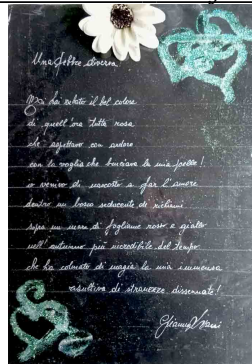 Una febbre diversa.
Mi hai rubato il bel colore
di quell'ora tutta rosa
che aspettavo con ardore
con la voglia che bruciava la mia pelle!
io venivo di nascosto a far l'amore
dentro un bosco seducente di richiami
sopra un mare di fogliame rosso e giallo
nell'autunno più incredibile del tempo
che ha colmato di magia la mia immensa
di stranezze dissennate!